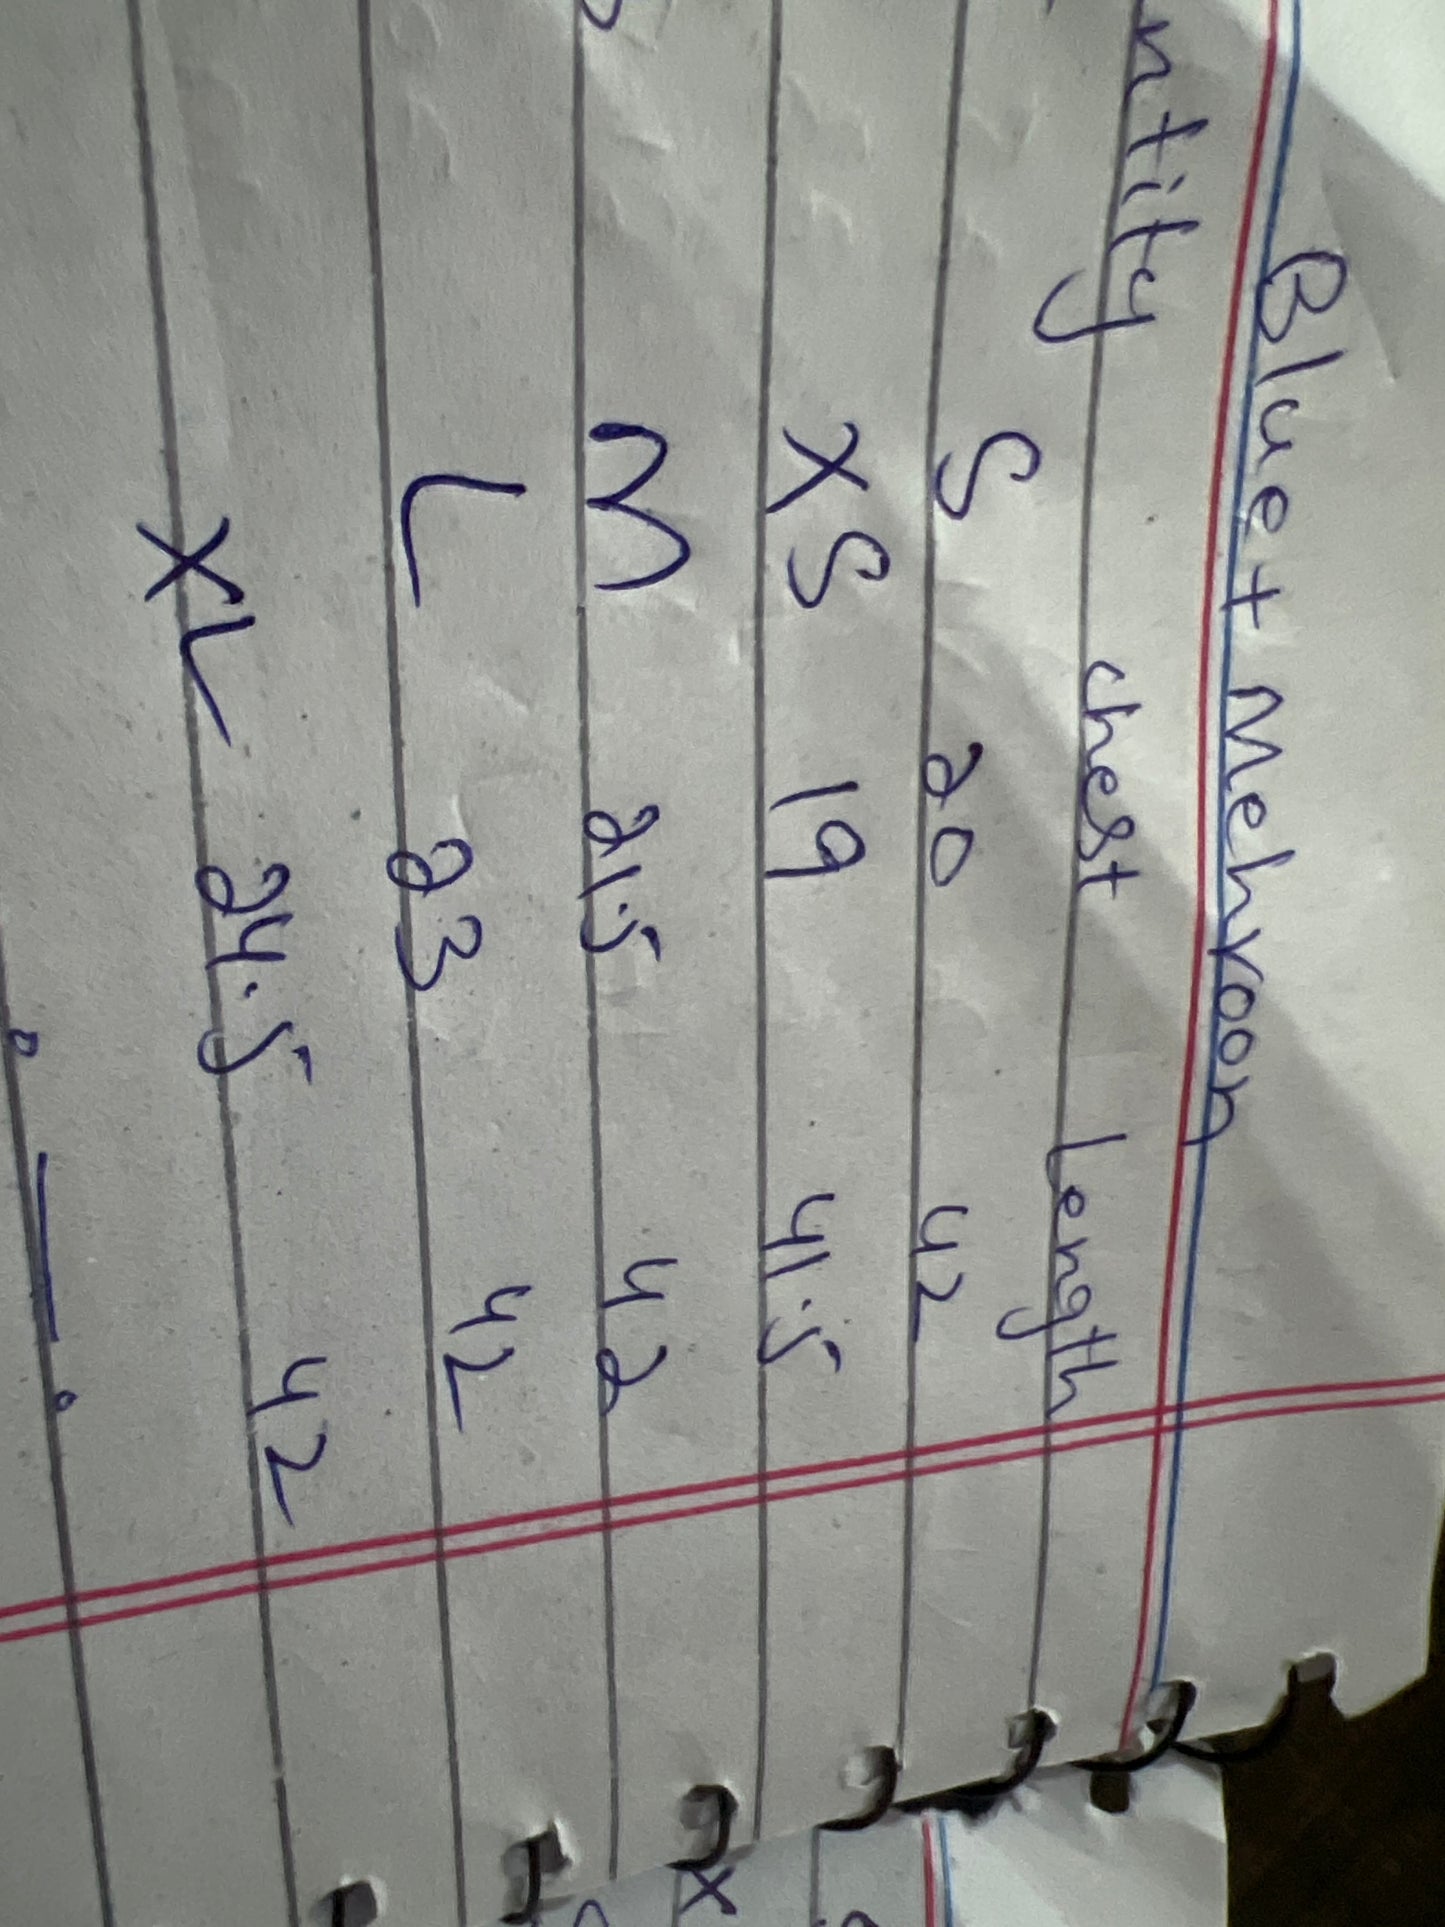 Blue + Mehroon
ntity chest Length
S 20 42
XS 19 41.5
M 21.5 42
L 23 42
XL 24.5 42